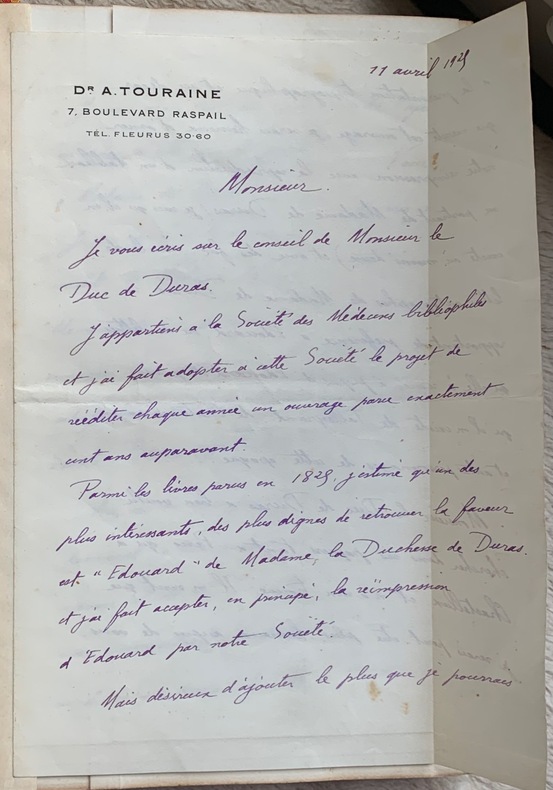 11 avril 1925
Dr A. TOURAINE
7, BOULEVARD RASPAIL
TÉL. FLEURUS 30-60
Monsieur.
Je vous écris sur le conseil de Monsieur le
Duc de Duras.
J'appartiens à la Société des Médecins bibliophiles
et j'ai fait adopter à cette Société le projet de
rééditer chaque année un ouvrage paru exactement
cent ans auparavant.
Parmi les livres parus en 1825 j'estime qu'un des
plus intéressants, des plus dignes de retrouver la faveur
est "Edouard" de Madame, la Duchesse de Duras.
et j'ai fait accepter, en principe, la réimpression
d'Edouard par notre Société.
Mais désireux d'ajouter le plus que je pourrais